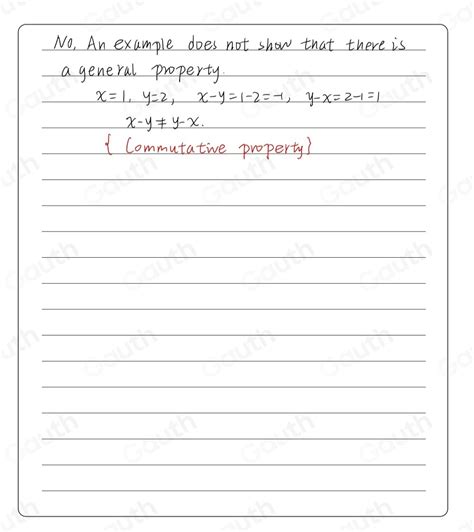 No, An example does not show that there is
a general property.
x=1, y=2, x-y=1-2=-1, y-x=2-1=1
x-y≠y-x.
{ Commutative property}